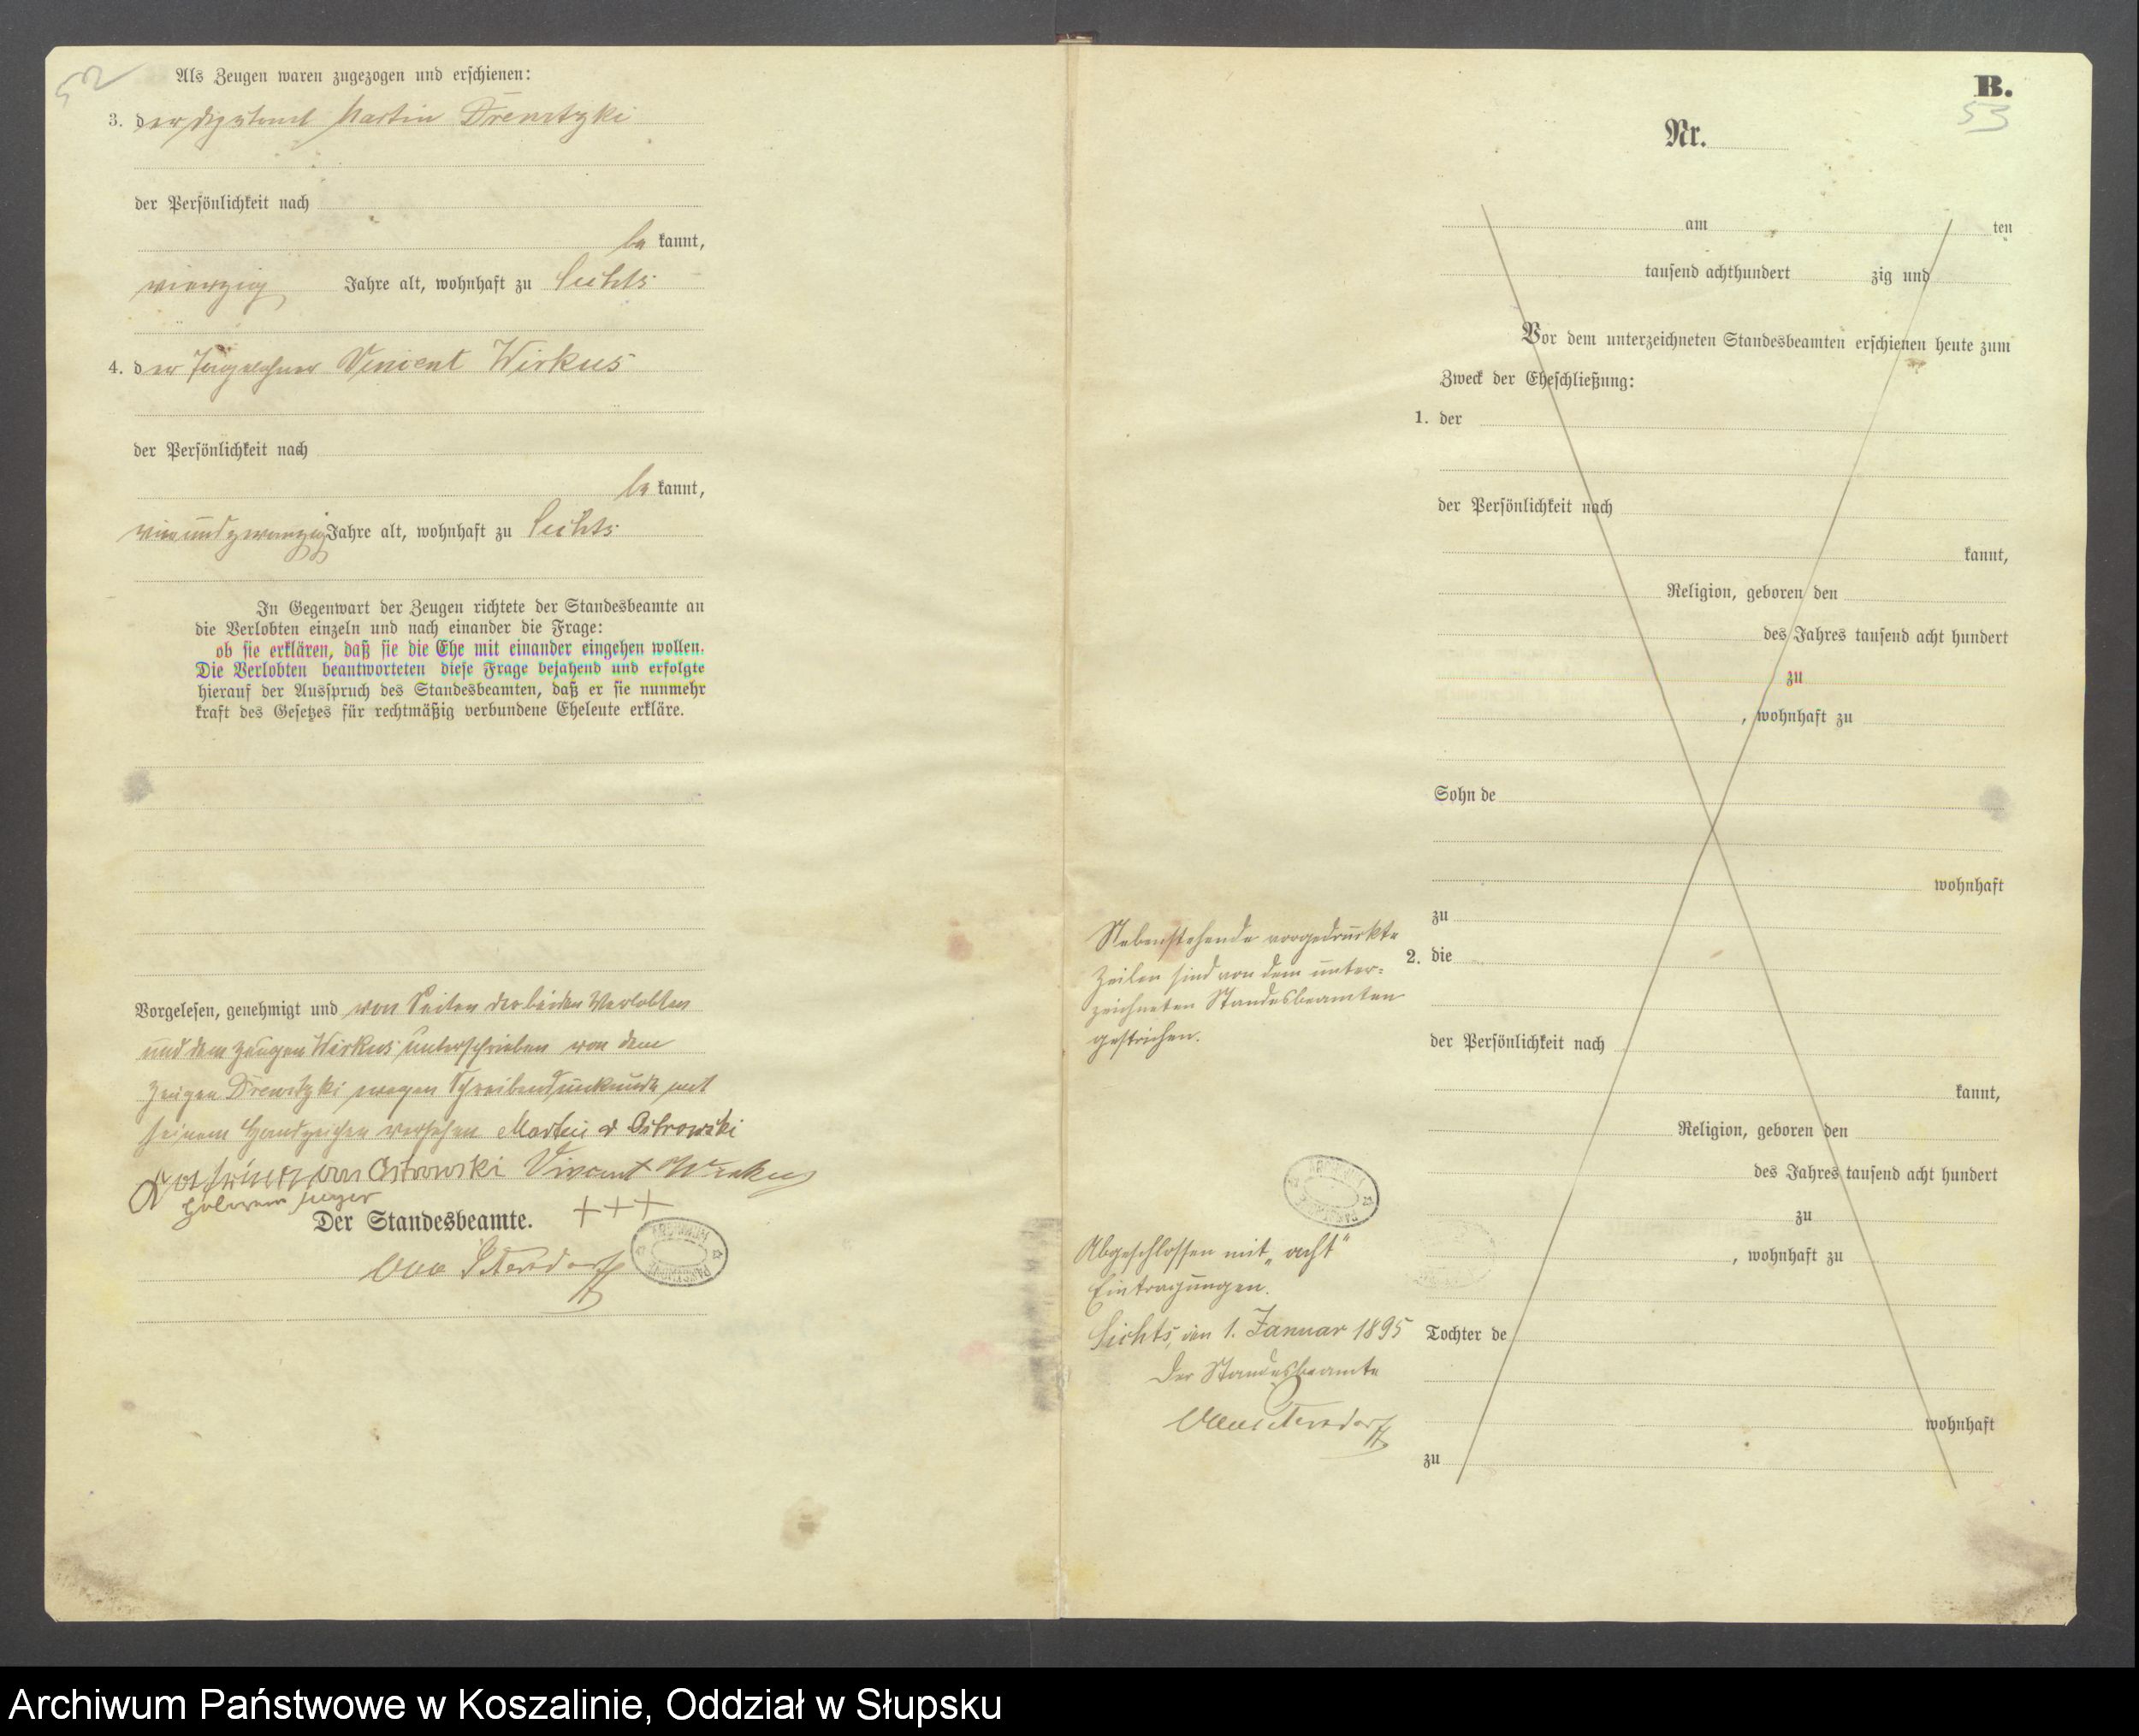 52
Als Zeugen waren zugezogen und erschienen:
3. der Martin Drewitzki
der Persönlichkeit nach
be kannt,
vierzig Jahre alt, wohnhaft zu Sichts
4. der Tagelöhner Vincent Wirkus
der Persönlichkeit nach
be kannt,
vierundzwanzig Jahre alt, wohnhaft zu Sichts
In Gegenwart der Zeugen richtete der Standesbeamte an
die Verlobten einzeln und nach einander die Frage:
ob sie erklären, daß sie die Ehe mit einander eingehen wollen.
Die Verlobten beantworteten diese Frage bejahend und erfolgte
hierauf der Ausspruch des Standesbeamten, daß er sie nunmehr
kraft des Gesetzes für rechtmäßig verbundene Eheleute erkläre.
Vorgelesen, genehmigt und von Seiten der beiden Verlobten
und dem Zeugen Wirkus unterschrieben von dem
Zeugen Drewitzki wegen Schreibensunkunde mit
seinem Handzeichen versehen Martin v Ostrowski
von Ostrowski Vincent Wirkus
+++
Der Standesbeamte.
B.
53
Nr.
am ten
tausend achthundert zig und
Vor dem unterzeichneten Standesbeamten erschienen heute zum
Zweck der Eheschließung:
1. der
der Persönlichkeit nach
kannt,
Religion, geboren den
des Jahres tausend acht hundert
zu
, wohnhaft zu
Sohn de
wohnhaft
zu
2. die
der Persönlichkeit nach
kannt,
Religion, geboren den
des Jahres tausend acht hundert
zu
, wohnhaft zu
Tochter de
wohnhaft
zu
Nebenstehende vorgedruckte
Zeilen sind von dem unter-
zeichneten Standesbeamten
gestrichen.
Abgeschlossen mit „acht"
Eintragungen.
Sichts, den 1. Januar 1895
Der Standesbeamte
Archiwum Państwowe w Koszalinie, Oddział w Słupsku